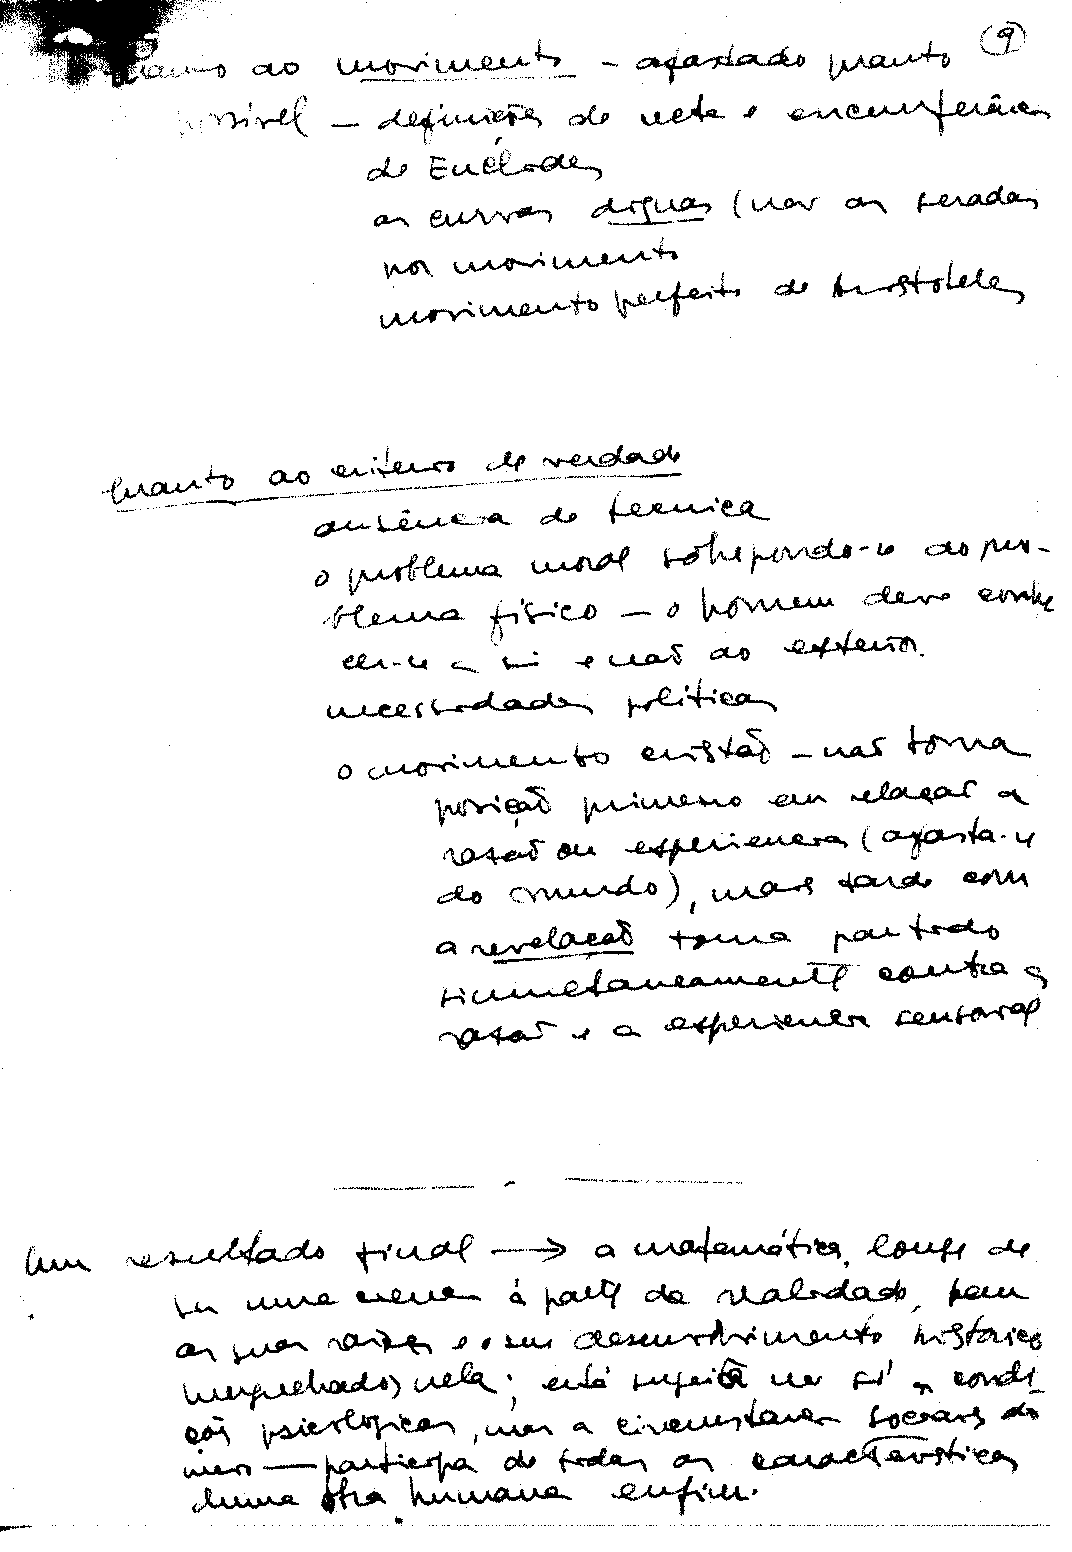 9
Quanto ao movimento - afastado quanto
possível - definições de recta e circunferência
de Euclides
as curvas dignas (não as geradas
por movimento
movimento perfeito de Aristóteles
Quanto ao critério de verdade
ausência de técnica
o problema moral sobrepondo-se ao pro-
blema físico - o homem deve conhe
cer-se a si e não ao exterior.
necessidades políticas
o movimento cristão - não toma
posição primeiro em relação a
razão ou experiência (afasta-se
do mundo), mais tarde com
a revelação toma partido
simultaneamente contra a
razão e a experiência sensorial
Um resultado final → a matemática, longe de
ser uma ciência à parte da realidade, tem
as suas raízes e o seu desenvolvimento histórico
mergulhados nela; está sujeita não só a condi-
ções psicológicas, mas a circunstâncias sociais do
meio — participa de todas as características
duma obra humana enfim.